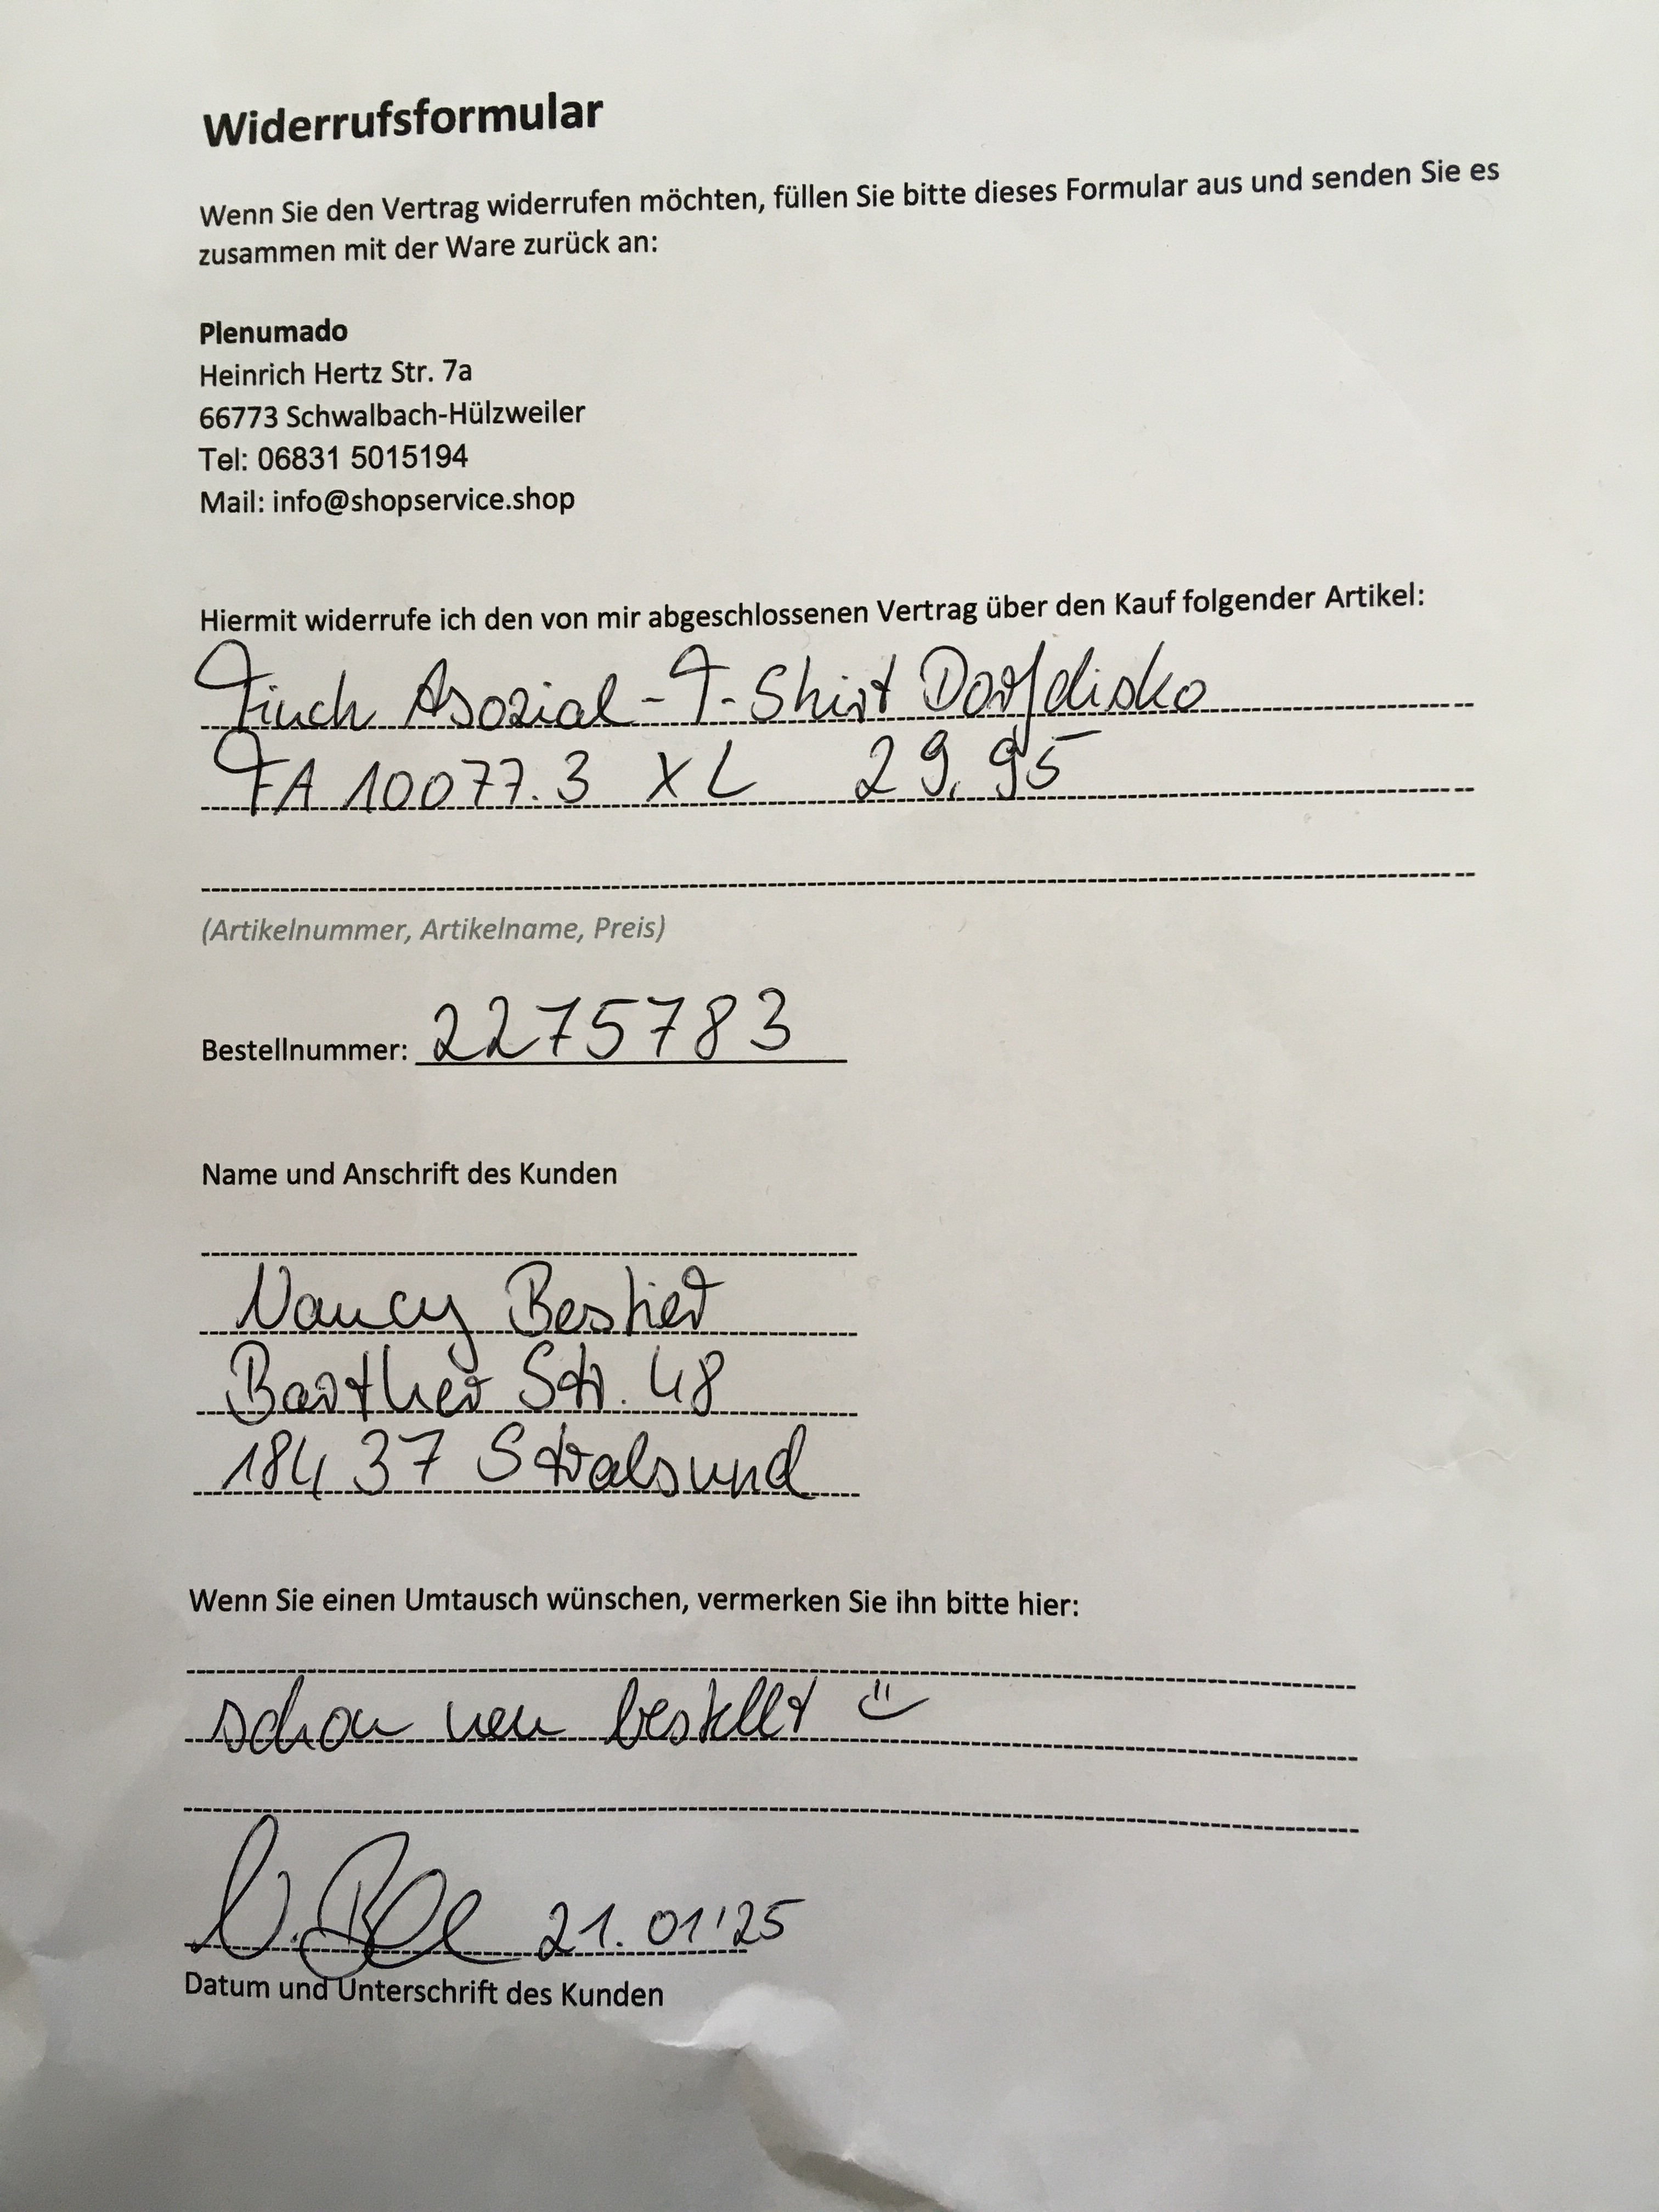 Widerrufsformular
Wenn Sie den Vertrag widerrufen möchten, füllen Sie bitte dieses Formular aus und senden Sie es
zusammen mit der Ware zurück an:
Plenumado
Heinrich Hertz Str. 7a
66773 Schwalbach-Hülzweiler
Tel: 06831 5015194
Mail: info@shopservice.shop
Hiermit widerrufe ich den von mir abgeschlossenen Vertrag über den Kauf folgender Artikel:
Finch Asozial-T-Shirt Dorfdisko
FA 10077.3 XL 29,95
(Artikelnummer, Artikelname, Preis)
Bestellnummer: 2275783
Name und Anschrift des Kunden
Nancy
Barther Str. 48
18437 Stralsund
Wenn Sie einen Umtausch wünschen, vermerken Sie ihn bitte hier:
schon neu bestellt
21.01'25
Datum und Unterschrift des Kunden